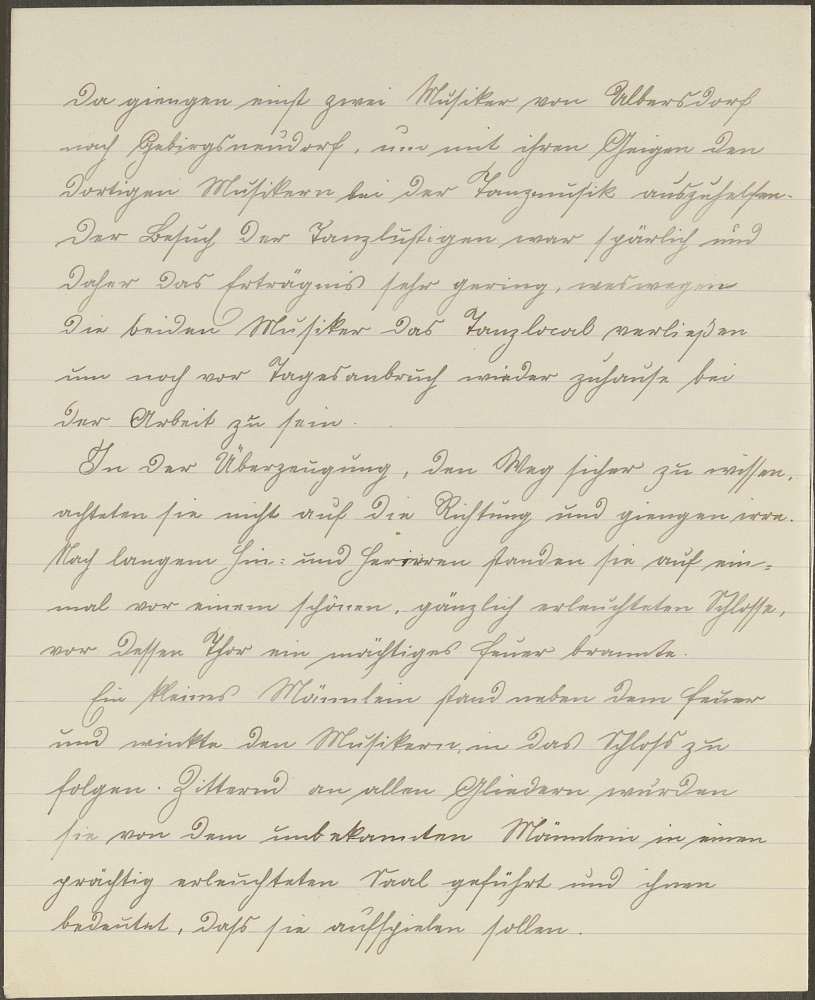 Da giengen einst zwei Musiker von Ulbersdorf
nach Gebirgsneudorf, um mit ihren Geigen den
dortigen Musikern bei der Tanzmusik auszuhelfen.
Der Besuch der Tanzlustigen war spärlich und
daher das Erträgnis sehr gering, weswegen
die beiden Musiker das Tanzlocal verließen
um noch vor Tagesanbruch wieder zuhause bei
der Arbeit zu sein.
In der Überzeugung, den Weg sicher zu wissen,
achteten sie nicht auf die Richtung und giengen irre.
Nach langem Hin- und Herirren standen sie auf ein-
mal vor einem schönen, gänzlich erleuchteten Schlosse,
vor dessen Thor ein mächtiges Feuer brannte.
Ein kleines Männlein stand neben dem Feuer
und winkte den Musikern, in das Schloß zu
folgen. Zitternd an allen Gliedern wurden
sie von dem unbekannten Männlein in einen
prächtig erleuchteten Saal geführt und ihnen
bedeutet, dass sie aufspielen sollen.